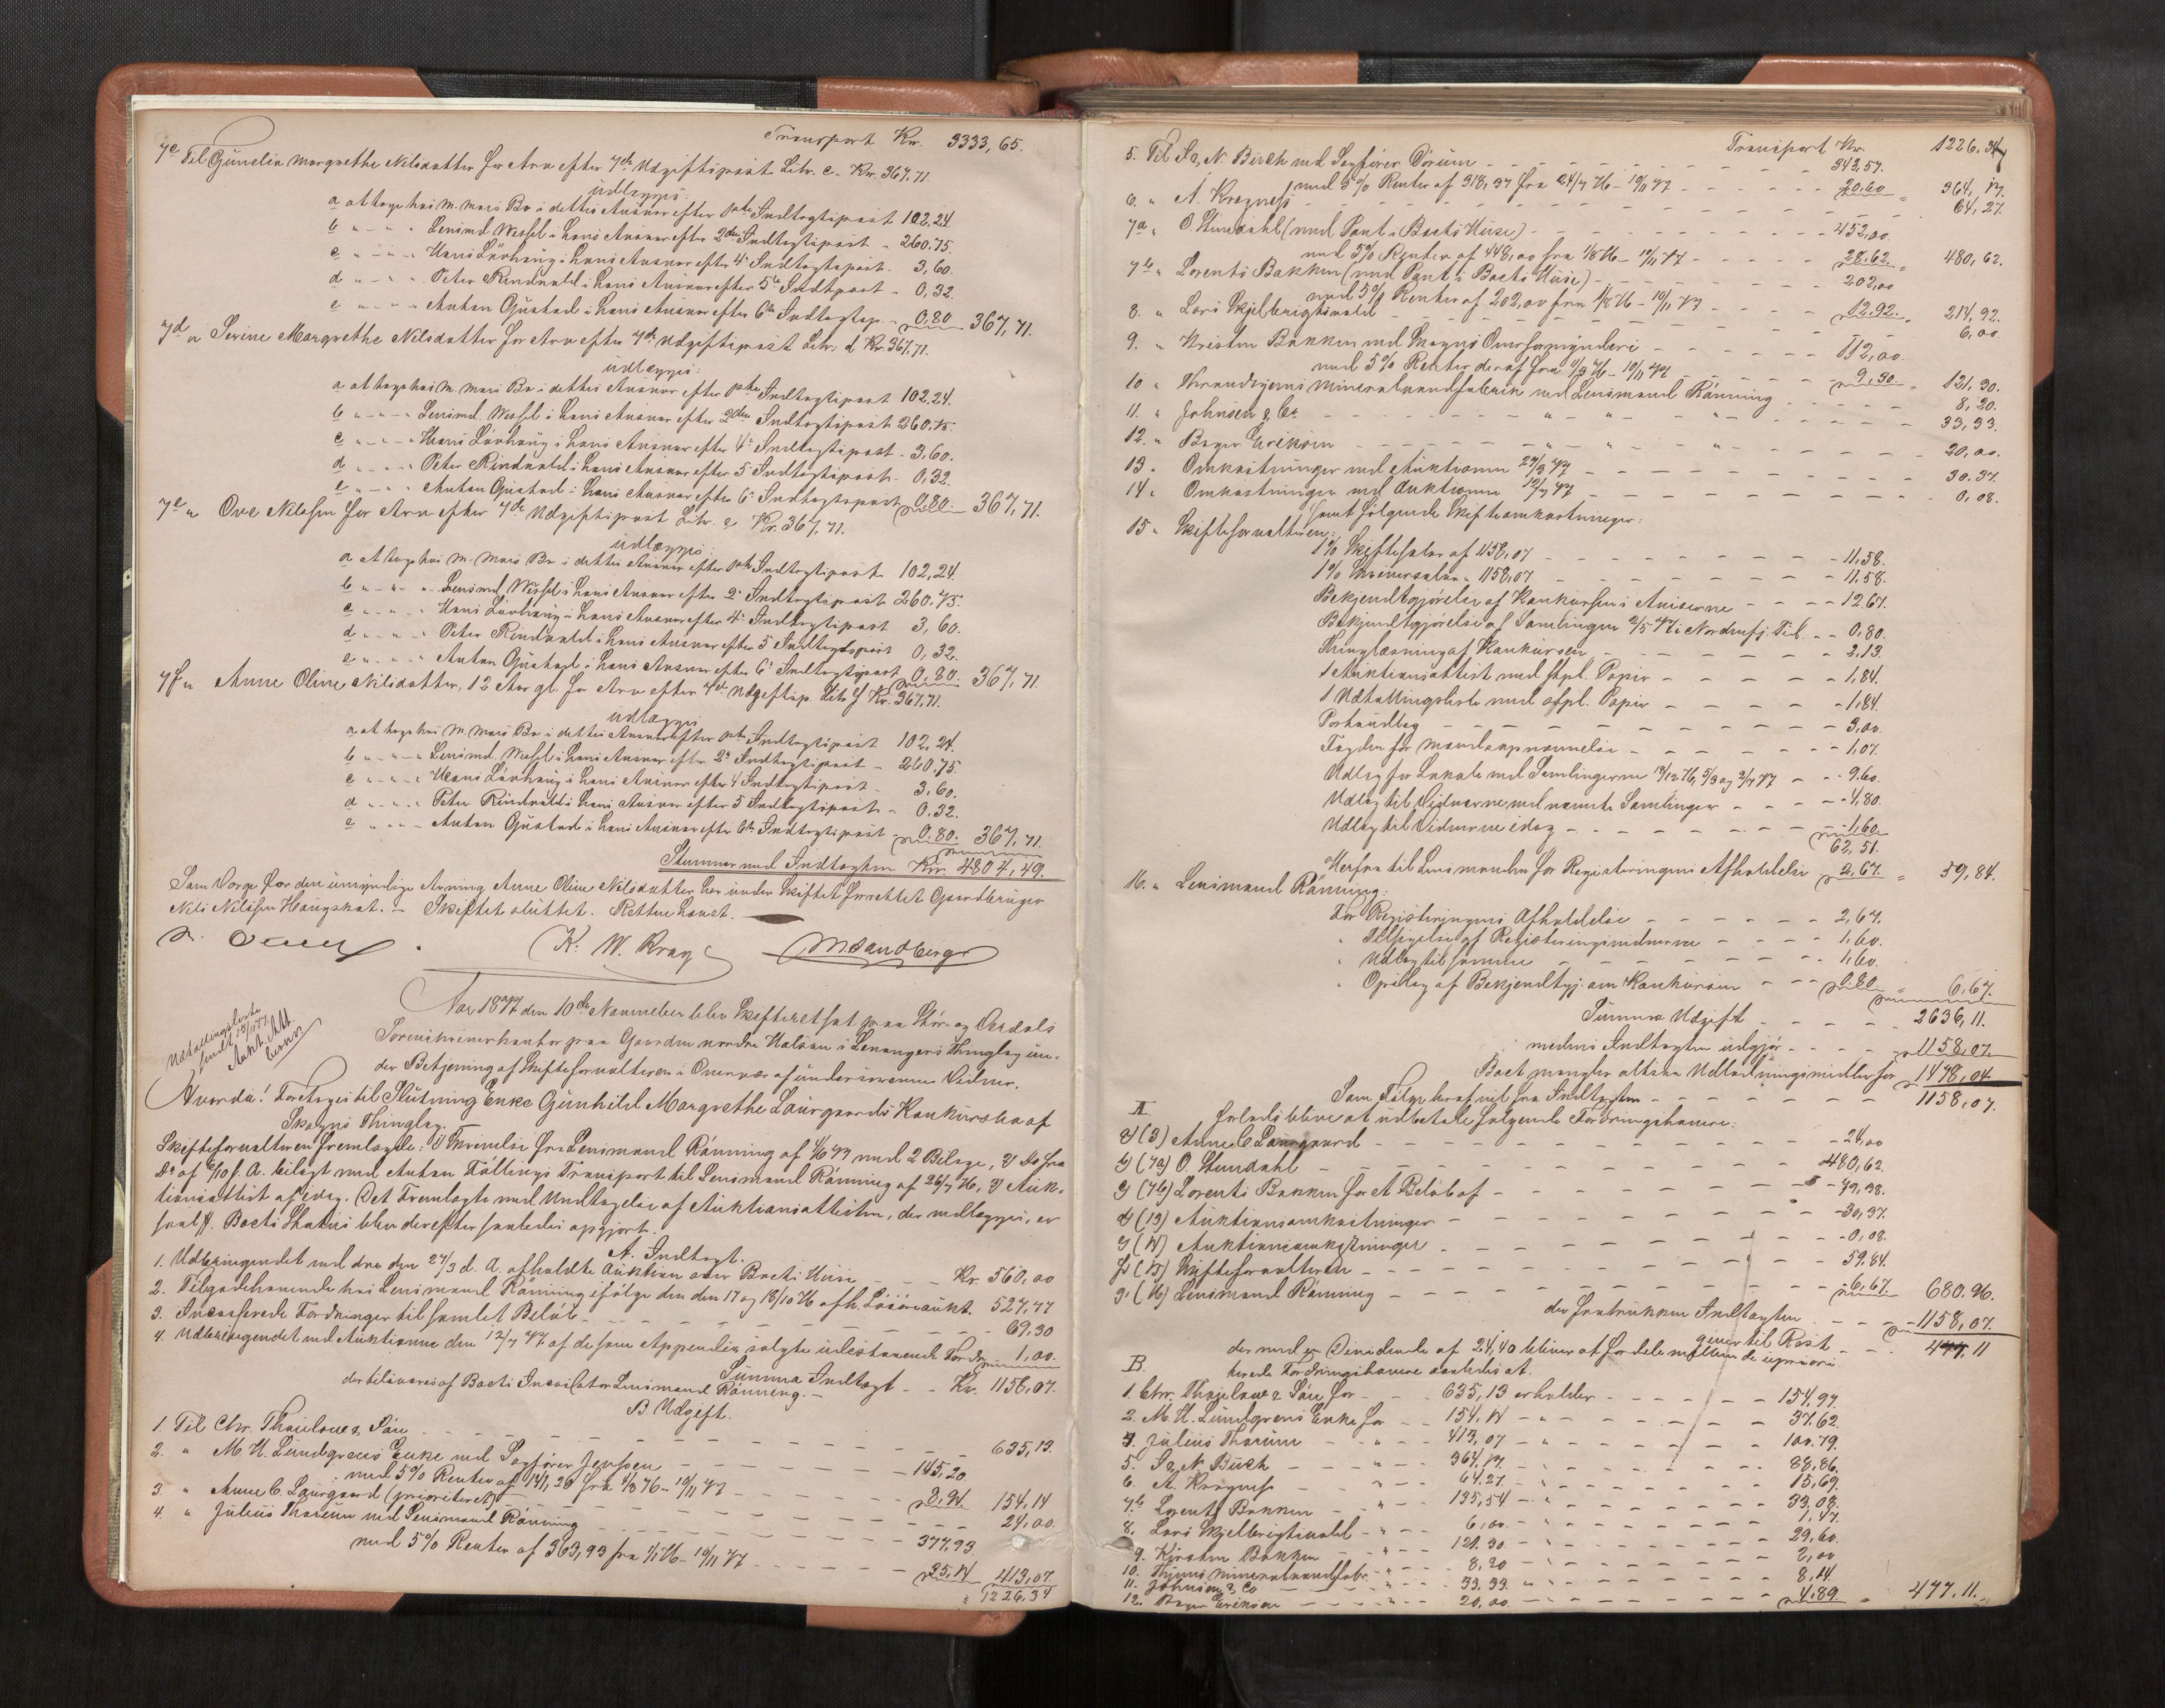 Transport Kr. 3333,65.
7c Til Gunelia Margrethe Nilsdatter for Arv efter 7de Udgiftspost Litr. c. Kr. 367,71.
udlægges:
a at tage hos M. Moes Bo i dettes Ansvar efter 1ste Indtægtspost 102,24
b " " " Lensmd. Wessel i hans Ansvar efter 2den Indtægtspost - 260.75.
c " " " Hans Lövhaug i hans Ansvar efter 4de Indtægtspost - 3,60.
d " " " Peter Rindvold i hans Ansvar efter 5te Indtpost - 0,32.
e " " " Anton Gustad i hans Ansvar efter 6te Indtægtsp. - 0,80 367,71.
7d " Serine Margrethe Nilsdatter for Arv efter 7de Udgiftspost Litr. d Kr. 367,71.
udlægges:
a at tage hos M. Moes Bo i dettes Ansvar efter 1ste Indtægtspost 102.24.
b " " " Lensmd. Wessel i hans Ansvar efter 2den Indtægtspost 260.75.
c " " " Hans Lövhaug i hans Ansvar efter 4de Indtægtspost - 3,60.
d " " " Peter Rindvold i hans Ansvar efter 5 Indtægtspost - 0,32.
e " " " Anton Gustad i hans Ansvar efter 6te Indtægtspost 0,80 367,71.
7e " Ove Nilssen for Arv efter 7de Udgiftspost Litr. e Kr. 367,71.
udlægges:
a at tage hos M. Moes Bo i dettes Ansvar efter 1ste Indtægtspost 102,24.
b " " " Lensmd. Wessel i hans Ansvar efter 2. Indtægtspost 260.75.
c " " " Hans Lövhaug i hans Ansvar efter 4de Indtægtspost 3,60.
d " " " Peter Rindvold i hans Ansvar efter 5 Indtægtspost 0,32.
e " " " Anton Gustad i hans Ansvar efter 6te Indtægtspost 0,80. 367,71.
7f " Anne Oline Nilsdatter, 12 Aar gl. for Arv efter 7de Udgiftsp. Litr. f Kr. 367,71.
udlægges
a at tage hos M. Moes Bo i dettes Ansvar efter 1ste Indtægtspost 102,24.
b " " " Lensmd. Wessel i hans Ansvar efter 2de Indtægtspost - 260.75.
c " " " Hans Lövhaug i hans Ansvar efter 4 Indtægtspost - 3,60.
d " " " Peter Rindvold i hans Ansvar efter 5 Indtægtspost - 0,32.
e " " " Anton Gustad i hans Ansvar efter 6te Indtægtspost - 0.80. 367,71.
Stemmer med Indtægten Kr. 4804,49.
Som Værge for den umyndige Arving Anne Oline Nilsdatter har under Skiftet forrettet Gaardbruger
Nils Nilssen Haugskot. - Skiftet sluttet. Retten hævet.
K. W. Krag M. Sandberg
Aar 1877 den 10de November blev Skifteret sat paa Stör- og Værdals
Sorenskriverkontor paa Gaarden nordre Halsan i Levangers Thinglag un-
der Betjening af Skifteforvalteren i Overvær af underskrevne Vidner.
Udlodningsliste
sendt 15/11 77.
Aukt. Att.
beror
Hvorda! Foretages til Slutning Enke Gunhild Margrethe Laurgaards Konkursbo af
Skogns Thinglag.
Skifteforvalteren fremlagde: 1) Skrivelse fra Lensmand Rönning af 1/6 77 med 2 Bilage, 2) do fra
do af 6/10 f. A. bilagt med Anton Föllings Transport til Lensmand Rönning af 26/7 76, 3) Auk-
tionsattest af idag. Det Fremlagte med Undtagelse af Auktionsattesten, der vedlægges, er
saal. Boets Status blev derefter saaledes opgjort.
A. Indtægt.
1. Udbringendet ved den den 27/3 d. A. afholdte Auktion over Boets Huse - - - Kr. 560,00
2. Tilgodehavende hos Lensmand Rönning ifølge den den 17 og 18/10 76 afh. Lösöreaukt. 527,77
3. Incasserede Fordringer til samlet Beløb - - - 69,30
4. Udbringendet ved Auktionen den 12/7 77 af de som Appendix solgte udestaaende Fordr. 1,00.
Summa Indtægt - - Kr. 1158,07.
der beløves af Boets Incassator Lensmand Rönning. -
B. Udgift.
1. Til Chr. Thaulow & Sön - - - 635,13.
2. " M. H. Lundgrens Enke ved Sagfører Jenssen - - - 145,20
med 5% Renter af 141,20 fra 4/8 76 - 10/11 77 - - - 8,94 154,14
3 " Anne C. Laurgaard (prioriteret) - - - 24,00.
4. " Julius Thorum ved Lensmand Rönning - - - 377.93
med 5% Renter af 363,93 fra 1/1 76 - 10/11 77 - - - 35,14 413,07
1226,34
Transport Kr. 1226,34
5. Til Fr. N. Birch ved Sagfører Dørum - - - 343,57.
med 5% Renter af 318,97 fra 24/7 76 - 10/11 77 - - - 20,60 364,17.
6. " A. Krogness - - - 64,27.
7a " O. Stendahl (med Pant i Boets Huse) - - - 452,00
med 5% Renter af 448,00 fra 1/8 76 - 10/11 77 - - - 28.62. 480,62.
7b " Lorents Bakken (med Pant i Boets Huse) - - - 202,00
med 5% Renter af 202,00 fra 1/8 76 - 10/11 77 - - - 12,92. 214,92.
8. " Lars Skjelbrigtvold - - - 6,00
9. " Kristen Bakken ved Mogns Overformynderi - - - 112,00.
med 5% Renter deraf fra 11/3 76 - 10/11 77 - - - 9,30. 121,30.
10 " Throndhjems Mineralvandfabrik ved Lensmand Rönning - - - 8,20.
11. " Johnsen & Co. - - - 33,33.
12. " Bager Eriksen - - - 20,00.
13. Omkostninger ved Auktionen 27/3 77 - - - 30.37.
14. Omkostninger ved Auktionen 12/7 77 - - - 0,08.
samt følgende Skifteomkostninger:
15 " Skifteforvalteren:
1% Skiftesalær af 1158,07 - - - 11,58.
1% Skriversalær " 1158,07 - - - 11,58.
Bekjendtgjörelse af Konkursen i Aviserne - - - 12,67.
Bekjendtgjörelse af Samlingen 2/5 77 i Nordenfj. Tid. - - 0,80.
Thinglæsning af Konkursen - - - 2,13.
1 Auktionsattest med stpl. Papir - - - 1,84.
1 Udlodningsliste med stpl. Papir - - - 1,84.
Portoudlæg - - - 3,00
Fogden for Mandsopnævnelse - - - 1,07.
Udlæg for Lokale ved Samlingerne 19/12 76, 5/3 og 2/7 77 - - 9.60.
Udlæg til Vidnerne ved nævnte Samlinger - - - 4,80.
Udlæg til Vidnerne idag - - - 1,60.
62,51.
Herfra til Lensmanden for Registreringens Afholdelse 2,67. 59,84.
16. " Lensmand Rönning:
For Registreringens Afholdelse - - - 2,67.
" Tilsigelse af Registreringsvidnerne - - - 1,60.
" Udlæg til samme - - - 1,60.
" Opslag af Bekjendtgj. om Konkursen - - 0,80 6,67.
Summa Udgift - - - 2636,11.
medens Indtægten udgjør - - - 1158,07
Boet mangler altsaa Udlodningsmidler for 1478,04
Som Følge heraf vil fra Indtægten - - - 1158,07.
A. forlods blive at udbetale følgende Fordringshavere:
a) (3) Anne C. Laurgaard - - - 24,00
b) (7a) O. Stendahl - - - 480,62.
c) (7b) Lorents Bakken for et Beløb af - - - 79,38.
d) (13) Auktionsomkostninger - - - 30,37.
e) (14) Auktionsomkostninger - - - 0,08.
f) (15) Skifteforvalteren - - - 59.84.
g) (16) Lensmand Rönning - - - 6,67. 680.96.
der fratrukken Indtægten - - - 1158,07.
giver til Rest - - - 477,11
der med en Dividende af 24,40 bliver at fordele mellem de uprioriterede Fordringshavere saaledes at.
B.
1. Chr. Thaulow & Sön for - - 635,13 erholder - - - 154,97.
2. M. H. Lundgrens Enke for - - 154,14 - - - 37.62.
4. Julius Thorum - - 413,07 - - - 100.79.
5. Fr. N. Birch - - 364,17. - - - 88,86.
6. A. Krogness - - 64.27 - - - 15,69.
7b. Lorents Bakken - - 135,54 - - - 33,08.
8. Lars Skjelbrigtvold - - 6,00 - - - 1,47.
9. Kirsten Bakken - - 121.30 - - - 29,60.
10. Thjems Mineralvandfabr. - - 8,20 - - - 2,00
11. Johnsen & Co - - 33.33. - - - 8,14.
12. Bager Eriksen - - 20,00. - - - 4.89 477.11.